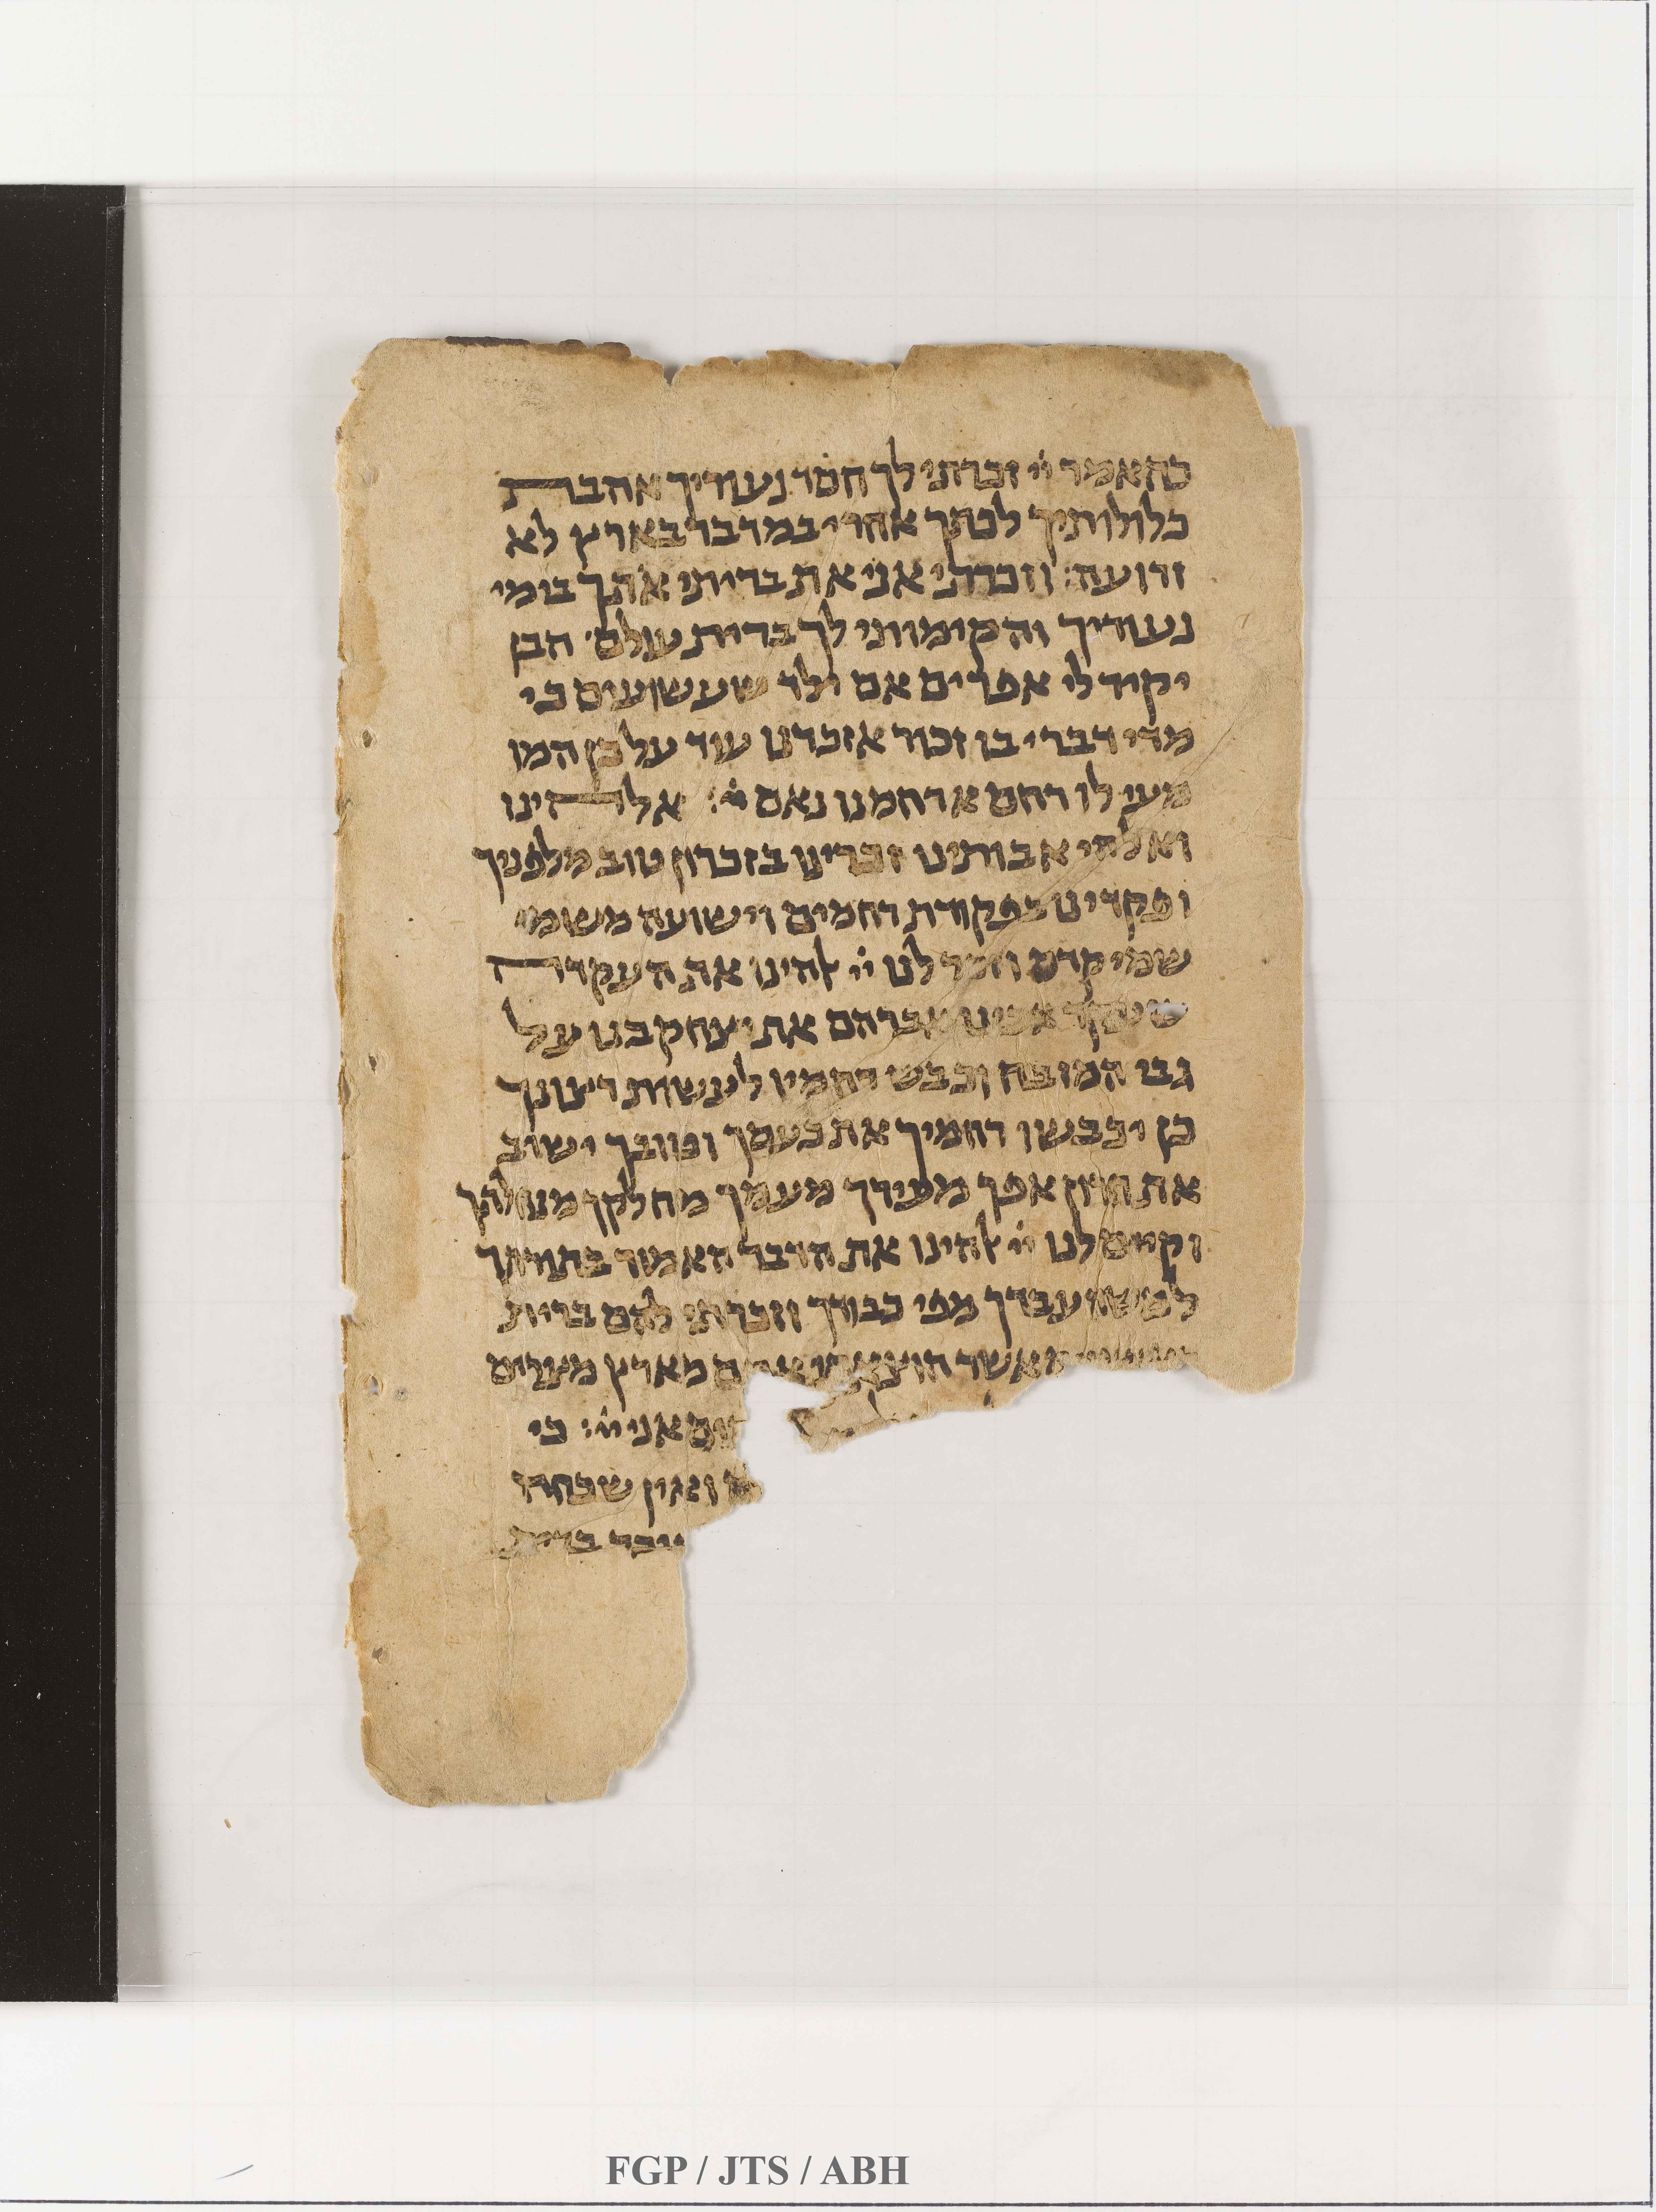 כה אמר יי זכרתי לך חסד נעוריך אהבת
כלולותיך לכתך אחרי במדבר בארץ לא
זרועה: וזכרתי אני את בריתי אתך בימי
נעוריך והקימותי לך ברית עולם׳ הבן
יקיר לי אפרים אם ילד שעשועים כי
מדי דברי בו זכור אזכרנו עוד על כן המו
מעי לו רחם ארחמנו נאם יי: אלהינו
ואלהי אבותינו זכרינו בזכרון טוב מלפניך
ופקדינו בפקודת רחמים וישועה משמי
שמי קדם וזכר לנו יי אלהינו את העקדה
שעקד אבינו אברהם את יצחק בנו על
גבי המזבח וכבש רחמיו לעשות רצונך
כן יכבשו רחמיך את כעסך ובטובך ישוב
את חרון אפך מעירך מעמך מחלקך מנחלתך
וקיים לנו יי אלהינו את הדבר האמור בתורתך
למשה עבדך מפי כבודך וזכרתי להם ברית
אשר הוצאתי אתם מארץ מצרים
אני יי: כי
ואין שכחה
זוכר ברית
FGP / JTS / ABH